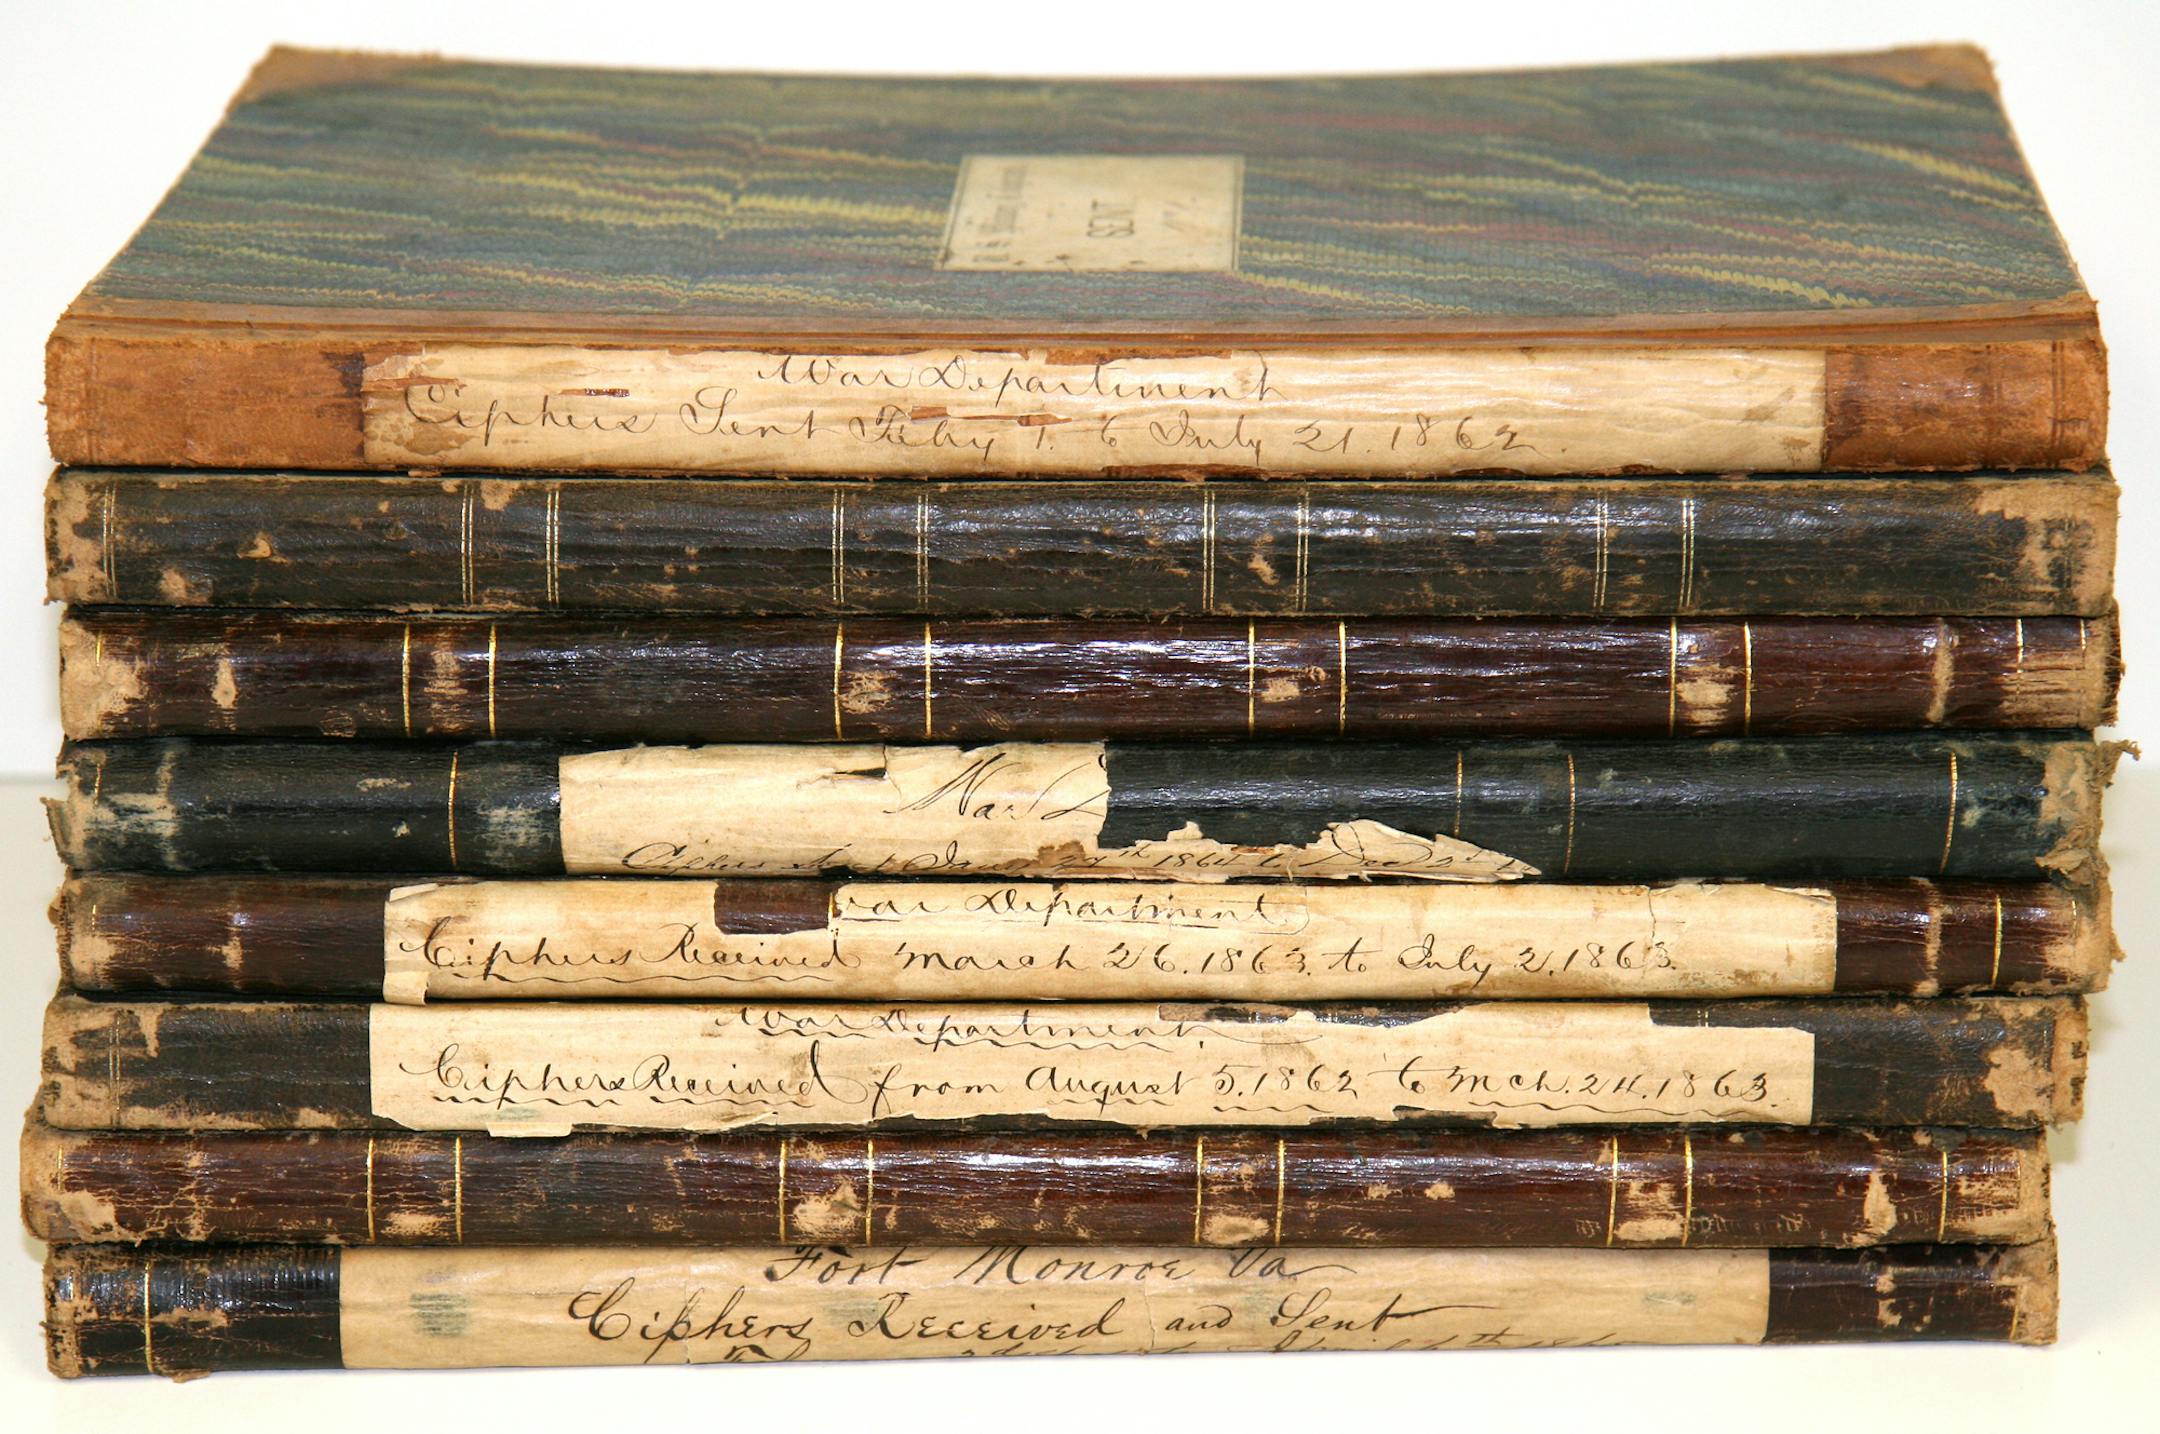 War Department
Ciphers Sent Feby 1. to July 21. 1862.
War D
Ciphers Sent Jany 27th 1864 to Dec
ar Department
Ciphers Received March 26. 1863. to July 2. 1863.
War Department.
Ciphers Received from August 5. 1862 to Mch. 24. 1863.
Fort Monroe Va
Ciphers Received and Sent